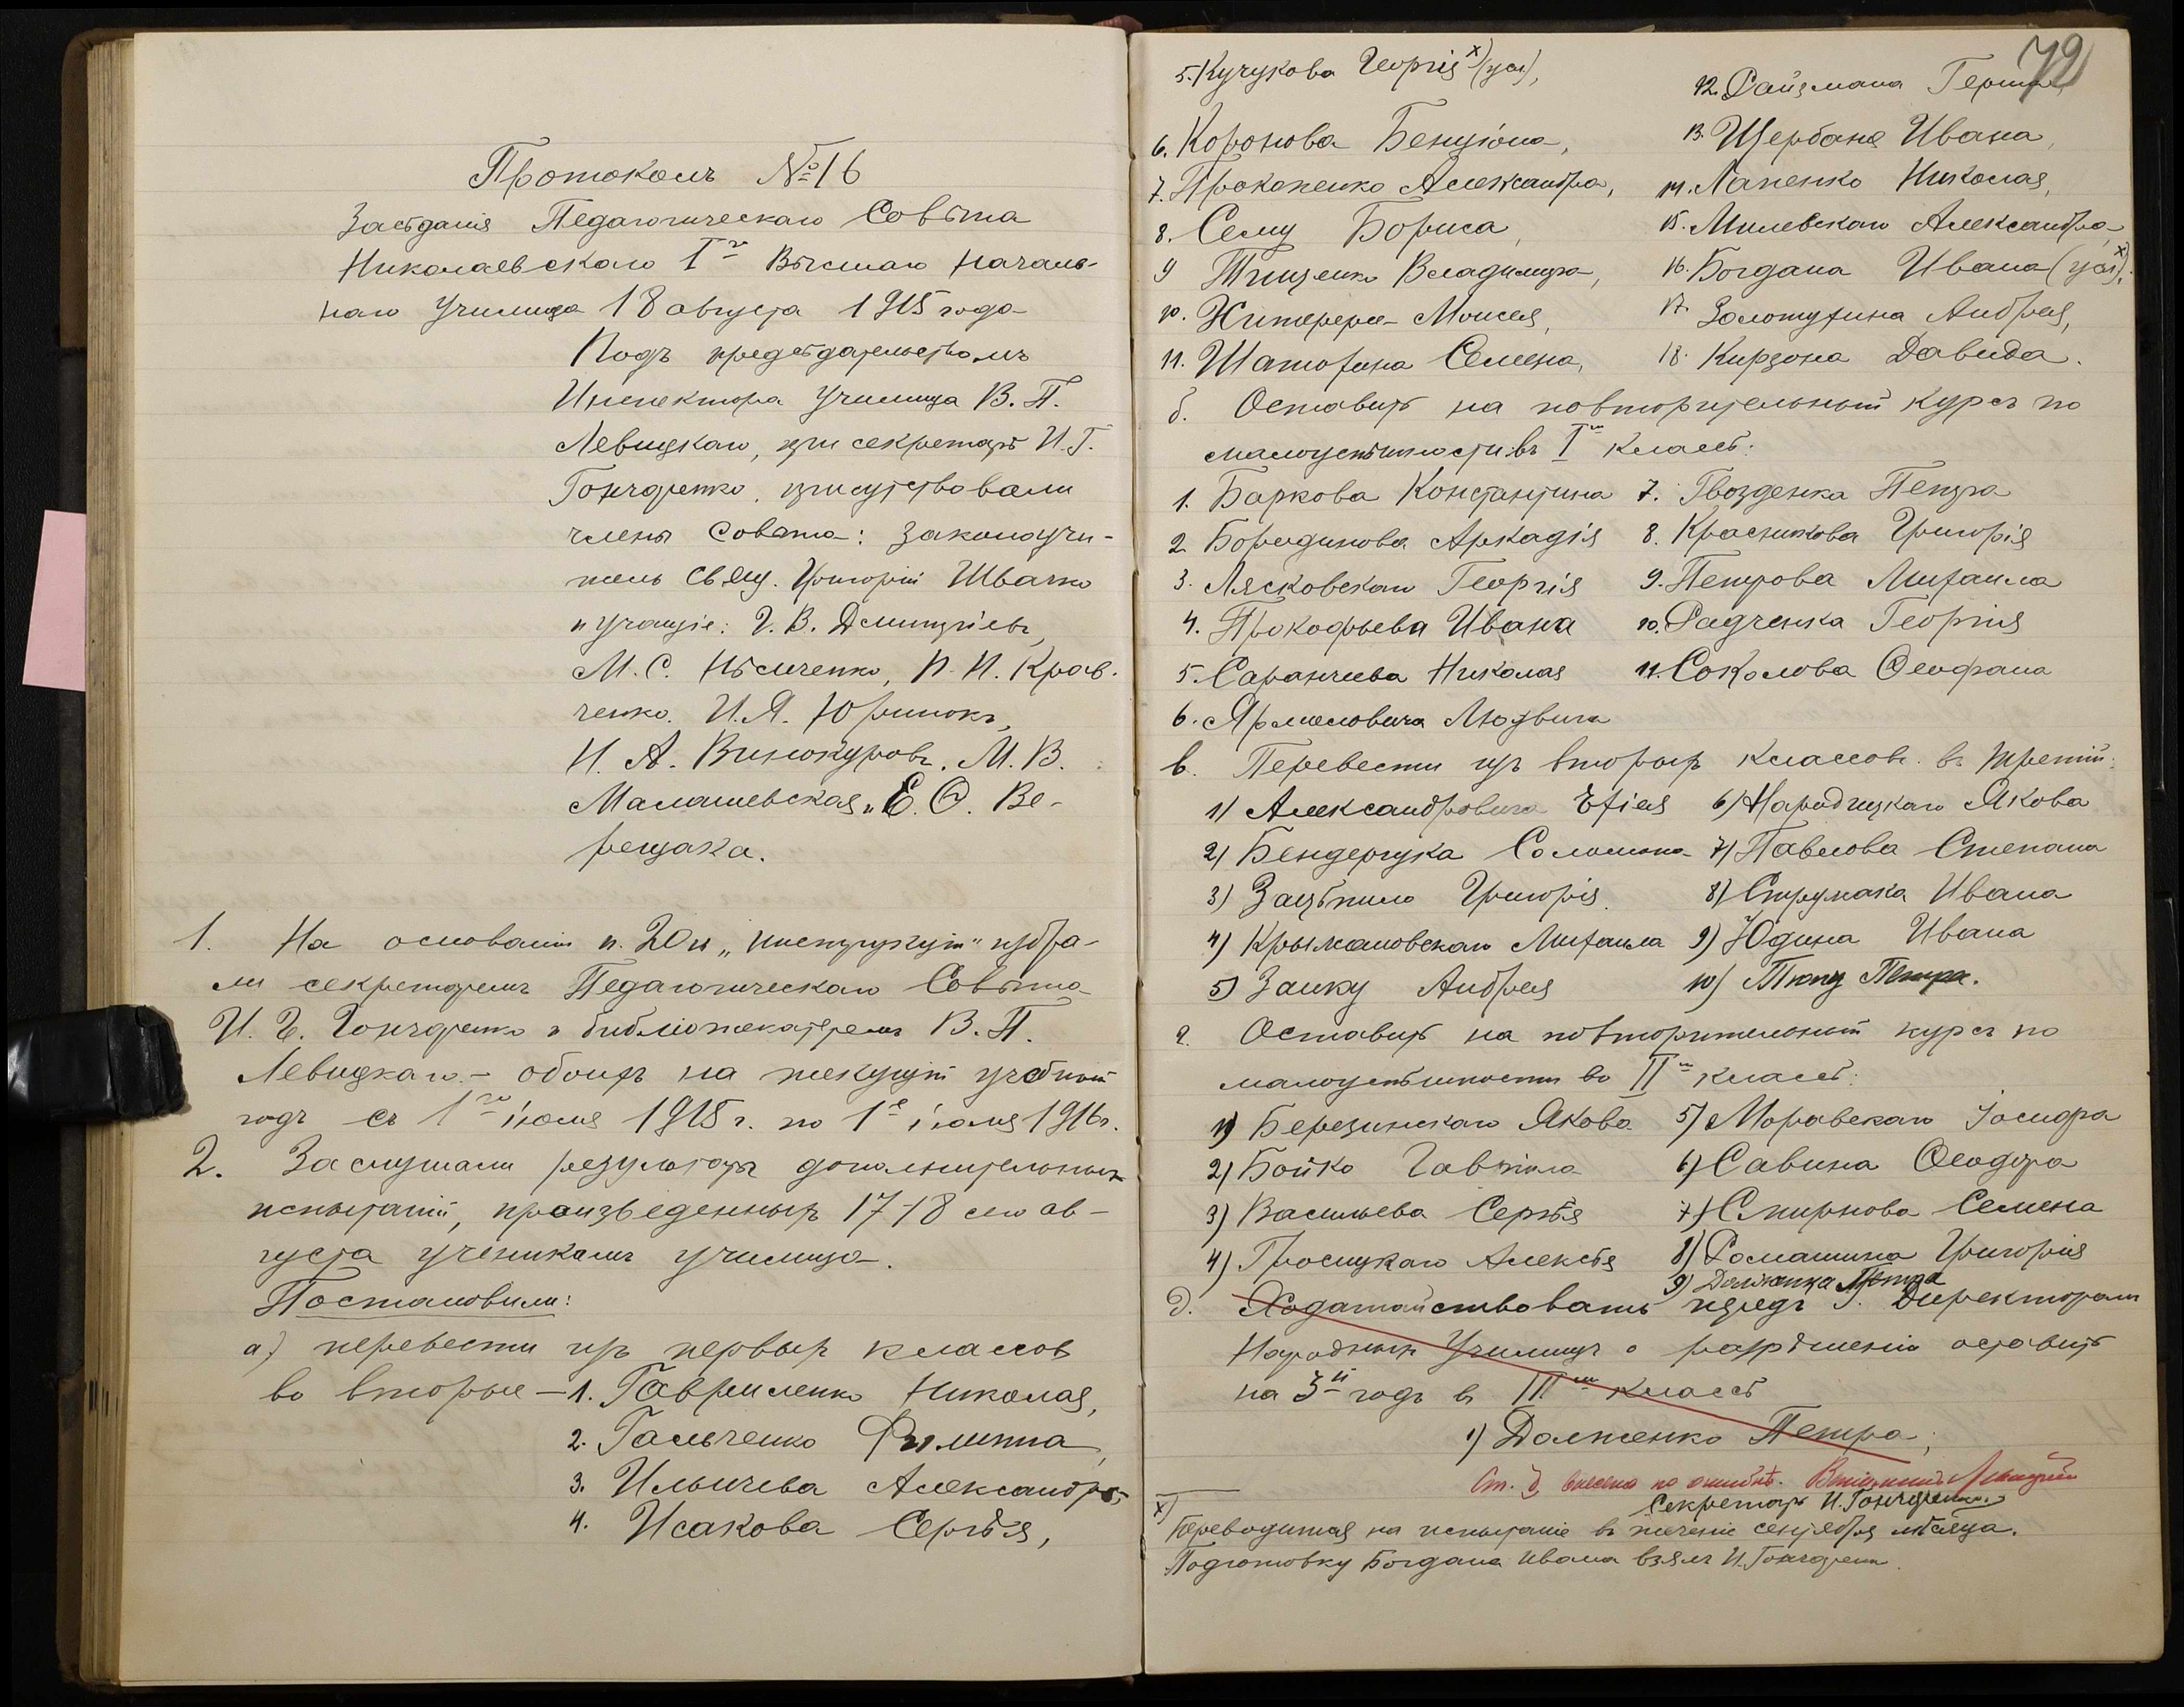 Протоколъ № 16
Засѣданія Педагогическаго Совѣта
Николаевскаго Iго Высшаго Началь-
наго Училища 18 августа 1915 года
Подъ предсѣдательствомъ
Инспектора Училища В. П.
Левицкаго, при секретарѣ И. Г.
Гончаренко, присутствовали
члены Совѣта: Законоучи-
тель Свящ. Григорій Швачко
и учащіе: Г. В. Дмитріевъ,
М. С. Нѣмченко, П. И. Крав-
ченко, И. Я. Юринокъ,
Н. А. Винокуровъ, М. В.
Малашевская и Е. Ѳ. Ве-
рещака.
1. На основаніи п. 20 и „инструкцій" избра-
ли секретаремъ Педагогическаго Совѣта
И. Г. Гончаренко и библіотекаремъ В. П.
Левицкаго - обоихъ на текущій учебный
годъ съ 1го іюля 1915 г. по 1е іюля 1916 г.
2. Заслушали результаты дополнительныхъ
испытаній, произведенныхъ 17-18 сего ав-
густа ученикамъ училища.
Постановили:
а) перевести изъ первыхъ классовъ
во вторые - 1. Гавриленко Николая,
2. Гальченко Филиппа,
3. Ильичева Александра,
4. Исакова Сергѣя,
72
5. Кучукова Георгія х) (усл),
6. Коронова Бенціона,
7. Прокопенко Александра,
8. Сему Бориса,
9 Тищенко Владимира,
10. Хитерера Моисея,
11. Шатохина Семена,
12. Райзмана Герша,
13. Щербаня Ивана,
14. Лапенко Николая,
15. Милевскаго Александра,
16. Богдана Ивана (усл) х),
17. Золотухина Андрея,
18. Кирзона Давида.
б. Оставить на повторительный курсъ по
малоуспѣшности въ Iм классѣ:
1. Баркова Константина 7. Гвозденка Петра
2. Бородинова Аркадія 8. Красникова Григорія
3. Лясковскаго Георгія 9. Петрова Михаила
4. Прокофьева Ивана 10. Радченка Георгія
5. Саранчева Николая 11. Соколова Ѳеофана
6. Ярмоловича Людвига
в. Перевести изъ вторыхъ классовъ въ третій:
1) Александровича Ефіея 6) Народицкаго Якова
2) Бендерчука Соломона 7) Павлова Степана
3) Зацѣпило Григорія 8) Стружака Ивана
4) Крыжановскаго Михаила 9) Юдина Ивана
5) Заику Андрея 10) Тюпу Петра.
г. Оставить на повторительный курсъ по
малоуспѣшности во IIм классѣ:
1) Березинскаго Якова 5) Моравскаго Іосифа
2) Бойко Гавріила 6) Савина Ѳеодора
3) Васильева Сергѣя 7) Смирнова Семена
4) Гросицкаго Алексѣя 8) Ромашина Григорія
9) Долженка Петра
д. Ходатайствовать передъ Г. Директоромъ
Народныхъ Училищъ о разрѣшеніи оставить
на 3й годъ въ IIIм классѣ
1) Долженко Петра;
Ст. д. внесена по ошибкѣ. Левицкій
Секретарь И. Гончаренко
х) Переводится на испытаніе въ теченіе сентября мѣсяца.
Подготовку Богдана Ивана взялъ И. Гончаренко.